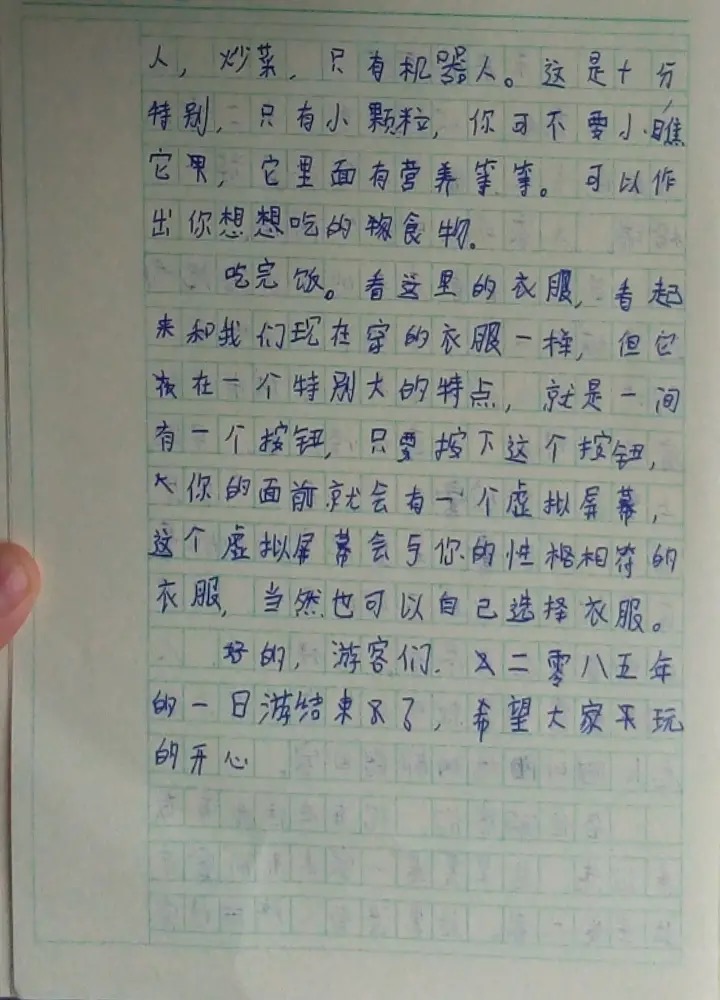 人，炒菜，只有机器人。这是十分
特别，只有小颗粒，你可不要小瞧
它男，它里面有营养等等。可以作
出你想想吃的物食物。
吃完饭。看这里的衣服，看起
来和我们现在穿的衣服一样，但它
在一个特别大的特点，就是一间
有一个按钮，只要按下这个按钮，
你的面前就会有一个虚拟屏幕，
这个虚拟屏幕会与你的性格相符的
衣服，当然也可以自己选择衣服。
好的，游客们．二零八五年
的一日游结束了，希望大家玩
的开心